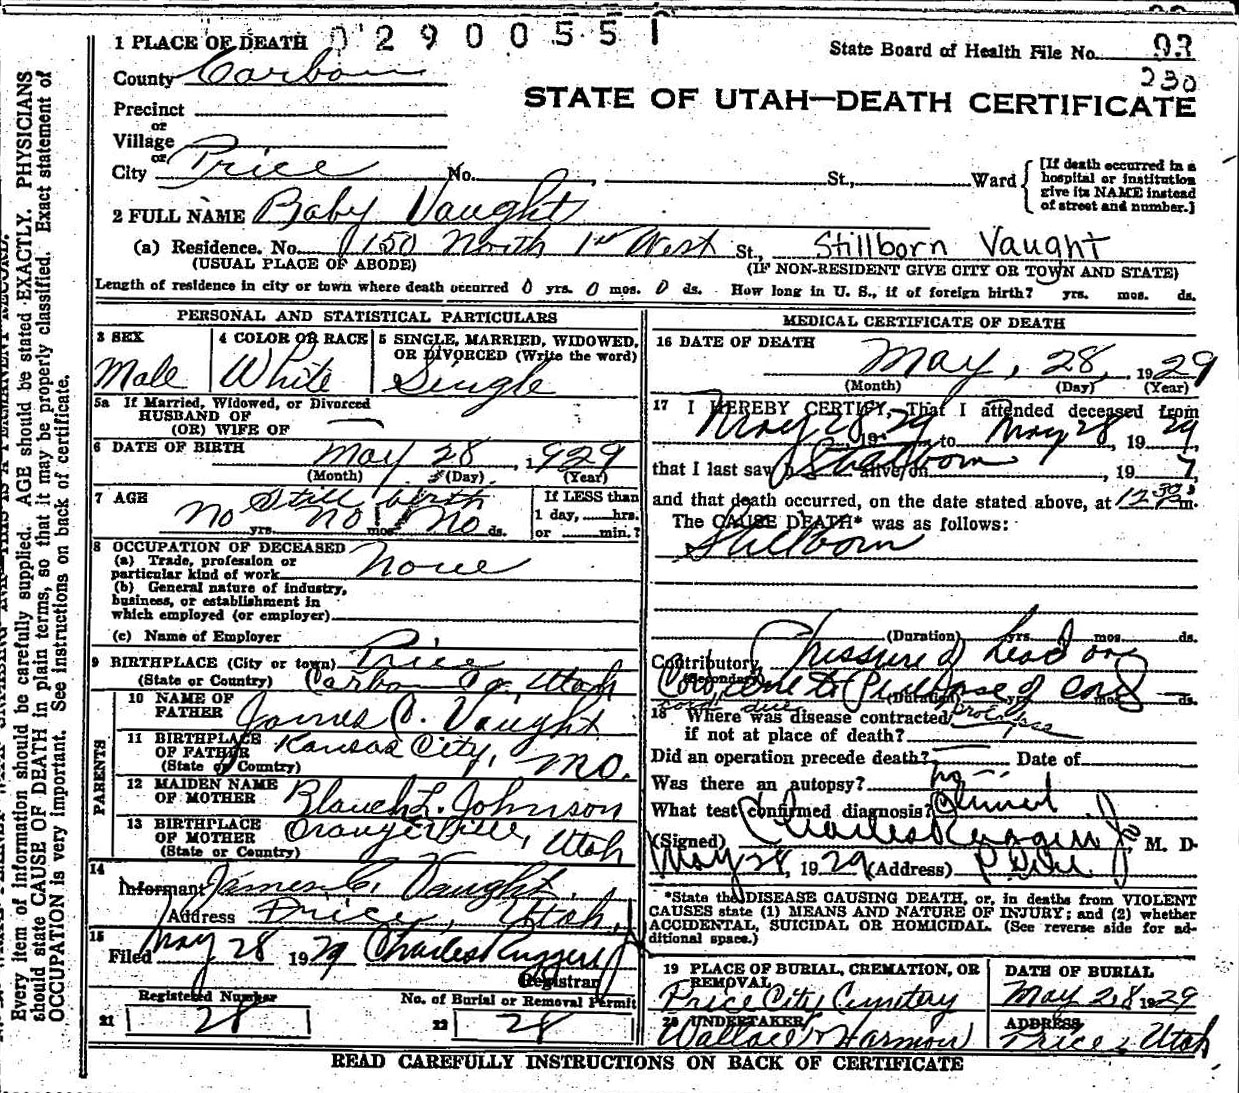 1 PLACE OF DEATH 02900551
State Board of Health File No. 93
230
County Carbon
STATE OF UTAH—DEATH CERTIFICATE
Precinct
or
Village
or
City Price No. , St., Ward
[If death occurred in a
hospital or institution
give its NAME instead
of street and number.]
2 FULL NAME Baby Vaught
(a) Residence. No. 150 North 1st West St., Stillborn Vaught
(USUAL PLACE OF ABODE) (IF NON-RESIDENT GIVE CITY OR TOWN AND STATE)
Length of residence in city or town where death occurred 0 yrs. 0 mos. 0 ds. How long in U. S., if of foreign birth? yrs. mos. ds.
PERSONAL AND STATISTICAL PARTICULARS
3 SEX 4 COLOR OR RACE 5 SINGLE, MARRIED, WIDOWED,
OR DIVORCED (Write the word)
Male White Single
5a If Married, Widowed, or Divorced
HUSBAND OF
(OR) WIFE OF
6 DATE OF BIRTH May 28, 1929
(Month) (Day) (Year)
7 AGE Still birth If LESS than
no no no 1 day, hrs.
yrs. mos. ds. or min.?
8 OCCUPATION OF DECEASED
(a) Trade, profession or
particular kind of work None
(b) General nature of industry,
business, or establishment in
which employed (or employer)
(c) Name of Employer
9 BIRTHPLACE (City or town) Price
(State or Country) Carbon Co, Utah
PARENTS
10 NAME OF
FATHER James C. Vaught
11 BIRTHPLACE
OF FATHER Kansas City, Mo.
(State or Country)
12 MAIDEN NAME
OF MOTHER Blanch L. Johnson
13 BIRTHPLACE
OF MOTHER Orangeville, Utah
(State or Country)
14
Informant James C. Vaught,
Address Price, Utah,
15
Filed May 28 1929 Charles Ruggeri Jr
Registrar
Registered Number No. of Burial or Removal Permit
21 28 22 28
MEDICAL CERTIFICATE OF DEATH
16 DATE OF DEATH
May, 28, 1929
(Month) (Day) (Year)
17 I HEREBY CERTIFY, That I attended deceased from
May 28 1929 to May 28, 1929
that I last saw h alive on Stillborn, 19
and that death occurred, on the date stated above, at 12 30 P m.
The CAUSE DEATH* was as follows:
Stillborn
(Duration) yrs. mos. ds.
Contributory Pressure of head on
(Secondary)
Cord due to Prolapse of Cord
(Duration) yrs. mos. ds.
cord due prolapse
18 Where was disease contracted
if not at place of death?
Did an operation precede death? Date of
Was there an autopsy? no
What test confirmed diagnosis? Clinical
(Signed) Charles Ruggeri Jr M. D.
May 28, 1929 (Address) Price
*State the DISEASE CAUSING DEATH, or, in deaths from VIOLENT
CAUSES state (1) MEANS AND NATURE OF INJURY; and (2) whether
ACCIDENTAL, SUICIDAL OR HOMICIDAL. (See reverse side for ad-
ditional space.)
19 PLACE OF BURIAL, CREMATION, OR
REMOVAL
Price City Cemetery
DATE OF BURIAL
May 28 1929
20 UNDERTAKER
Wallace Harmon
ADDRESS
Price, Utah
READ CAREFULLY INSTRUCTIONS ON BACK OF CERTIFICATE
Every item of information should be carefully supplied. AGE should be stated EXACTLY. PHYSICIANS
should state CAUSE OF DEATH in plain terms, so that it may be properly classified. Exact statement of
OCCUPATION is very important. See instructions on back of certificate.